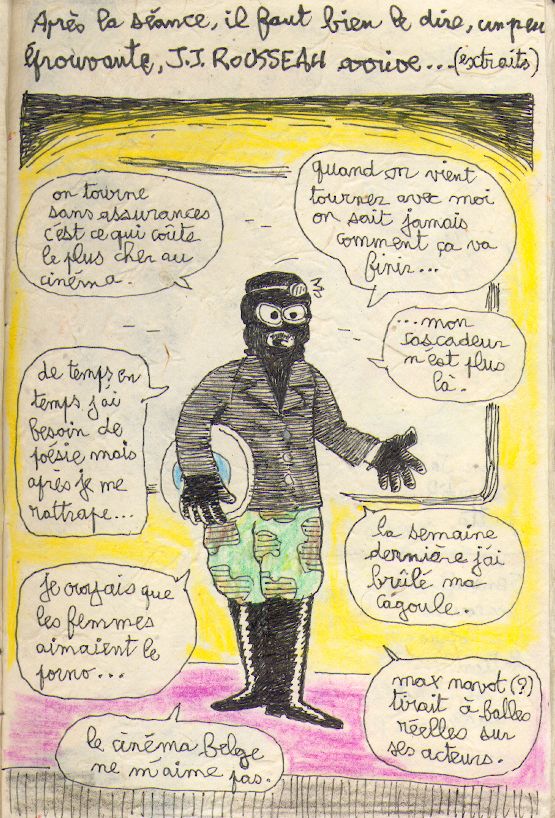 Après la séance, il faut bien le dire, un peu
éprouvante, J.J. ROUSSEAU arrive... (extraits)
on tourne
sans assurances
c'est ce qui coûte
le plus cher au
cinéma.
quand on vient
tourner avec moi
on sait jamais
comment ça va
finir...
...mon
cascadeur
n'est plus
là.
de temps en
temps j'ai
besoin de
poésie mais
après je me
rattrape...
la semaine
dernière j'ai
brûlé ma
cagoule.
je croyais que
les femmes
aimaient le
porno...
max navot (?)
tirait à balles
réelles sur
ses acteurs.
le cinéma belge
ne m'aime pas.